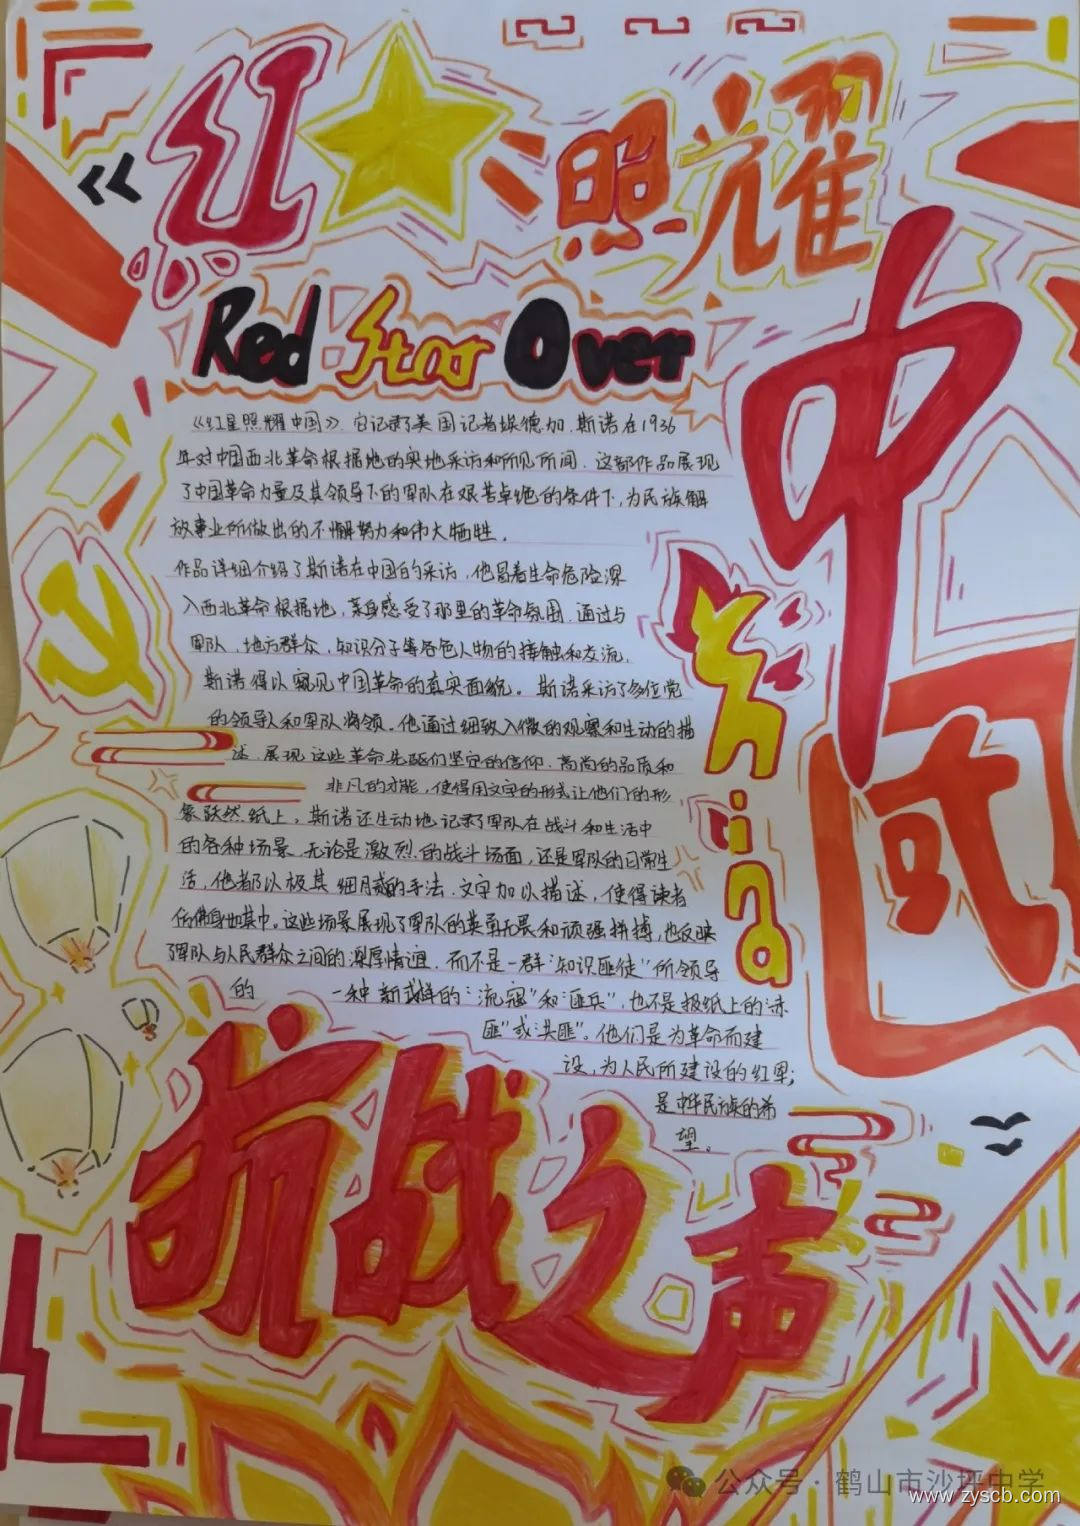 《红★照耀
中国
Red Star Over
China
《红星照耀中国》.它记录了美国记者埃德加.斯诺在1936
年对中国西北革命根据地的实地采访和所见所闻.这部作品展现
了中国革命力量及其领导下的军队在艰苦卓绝的条件下,为民族解
放事业所做出的不懈努力和伟大牺牲。
作品详细介绍了斯诺在中国的采访,他冒着生命危险深
入西北革命根据地,亲身感受了那里的革命氛围.通过与
军队,地方群众,知识分子等各色人物的接触和交流,
斯诺得以窥见中国革命的真实面貌。斯诺采访了多位党
的领导人和军队将领。他通过细致入微的观察和生动的描
述.展现这些革命先驱们坚定的信仰.高尚的品质和
非凡的才能,使得用文字的形式让他们的形
象跃然纸上,斯诺还生动地记录了军队在战斗和生活中
的各种场景.无论是激烈的战斗场面,还是军队的日常生
活,他都以极其细腻的手法.文字加以描述,使得读者
仿佛身如其中。这些场景展现了军队的英勇无畏和顽强拼搏,也反映
了军队与人民群众之间的深厚情谊.而不是一群"知识匪徒"所领导
的 一种新式样的"流寇"和"匪兵",也不是报纸上的"赤
匪"或"共匪"。他们是为革命而建
设,为人民所建设的红军;
是中华民族的希
望。
抗战之声
公众号·鹤山市沙坪中学
www.zyscb.com